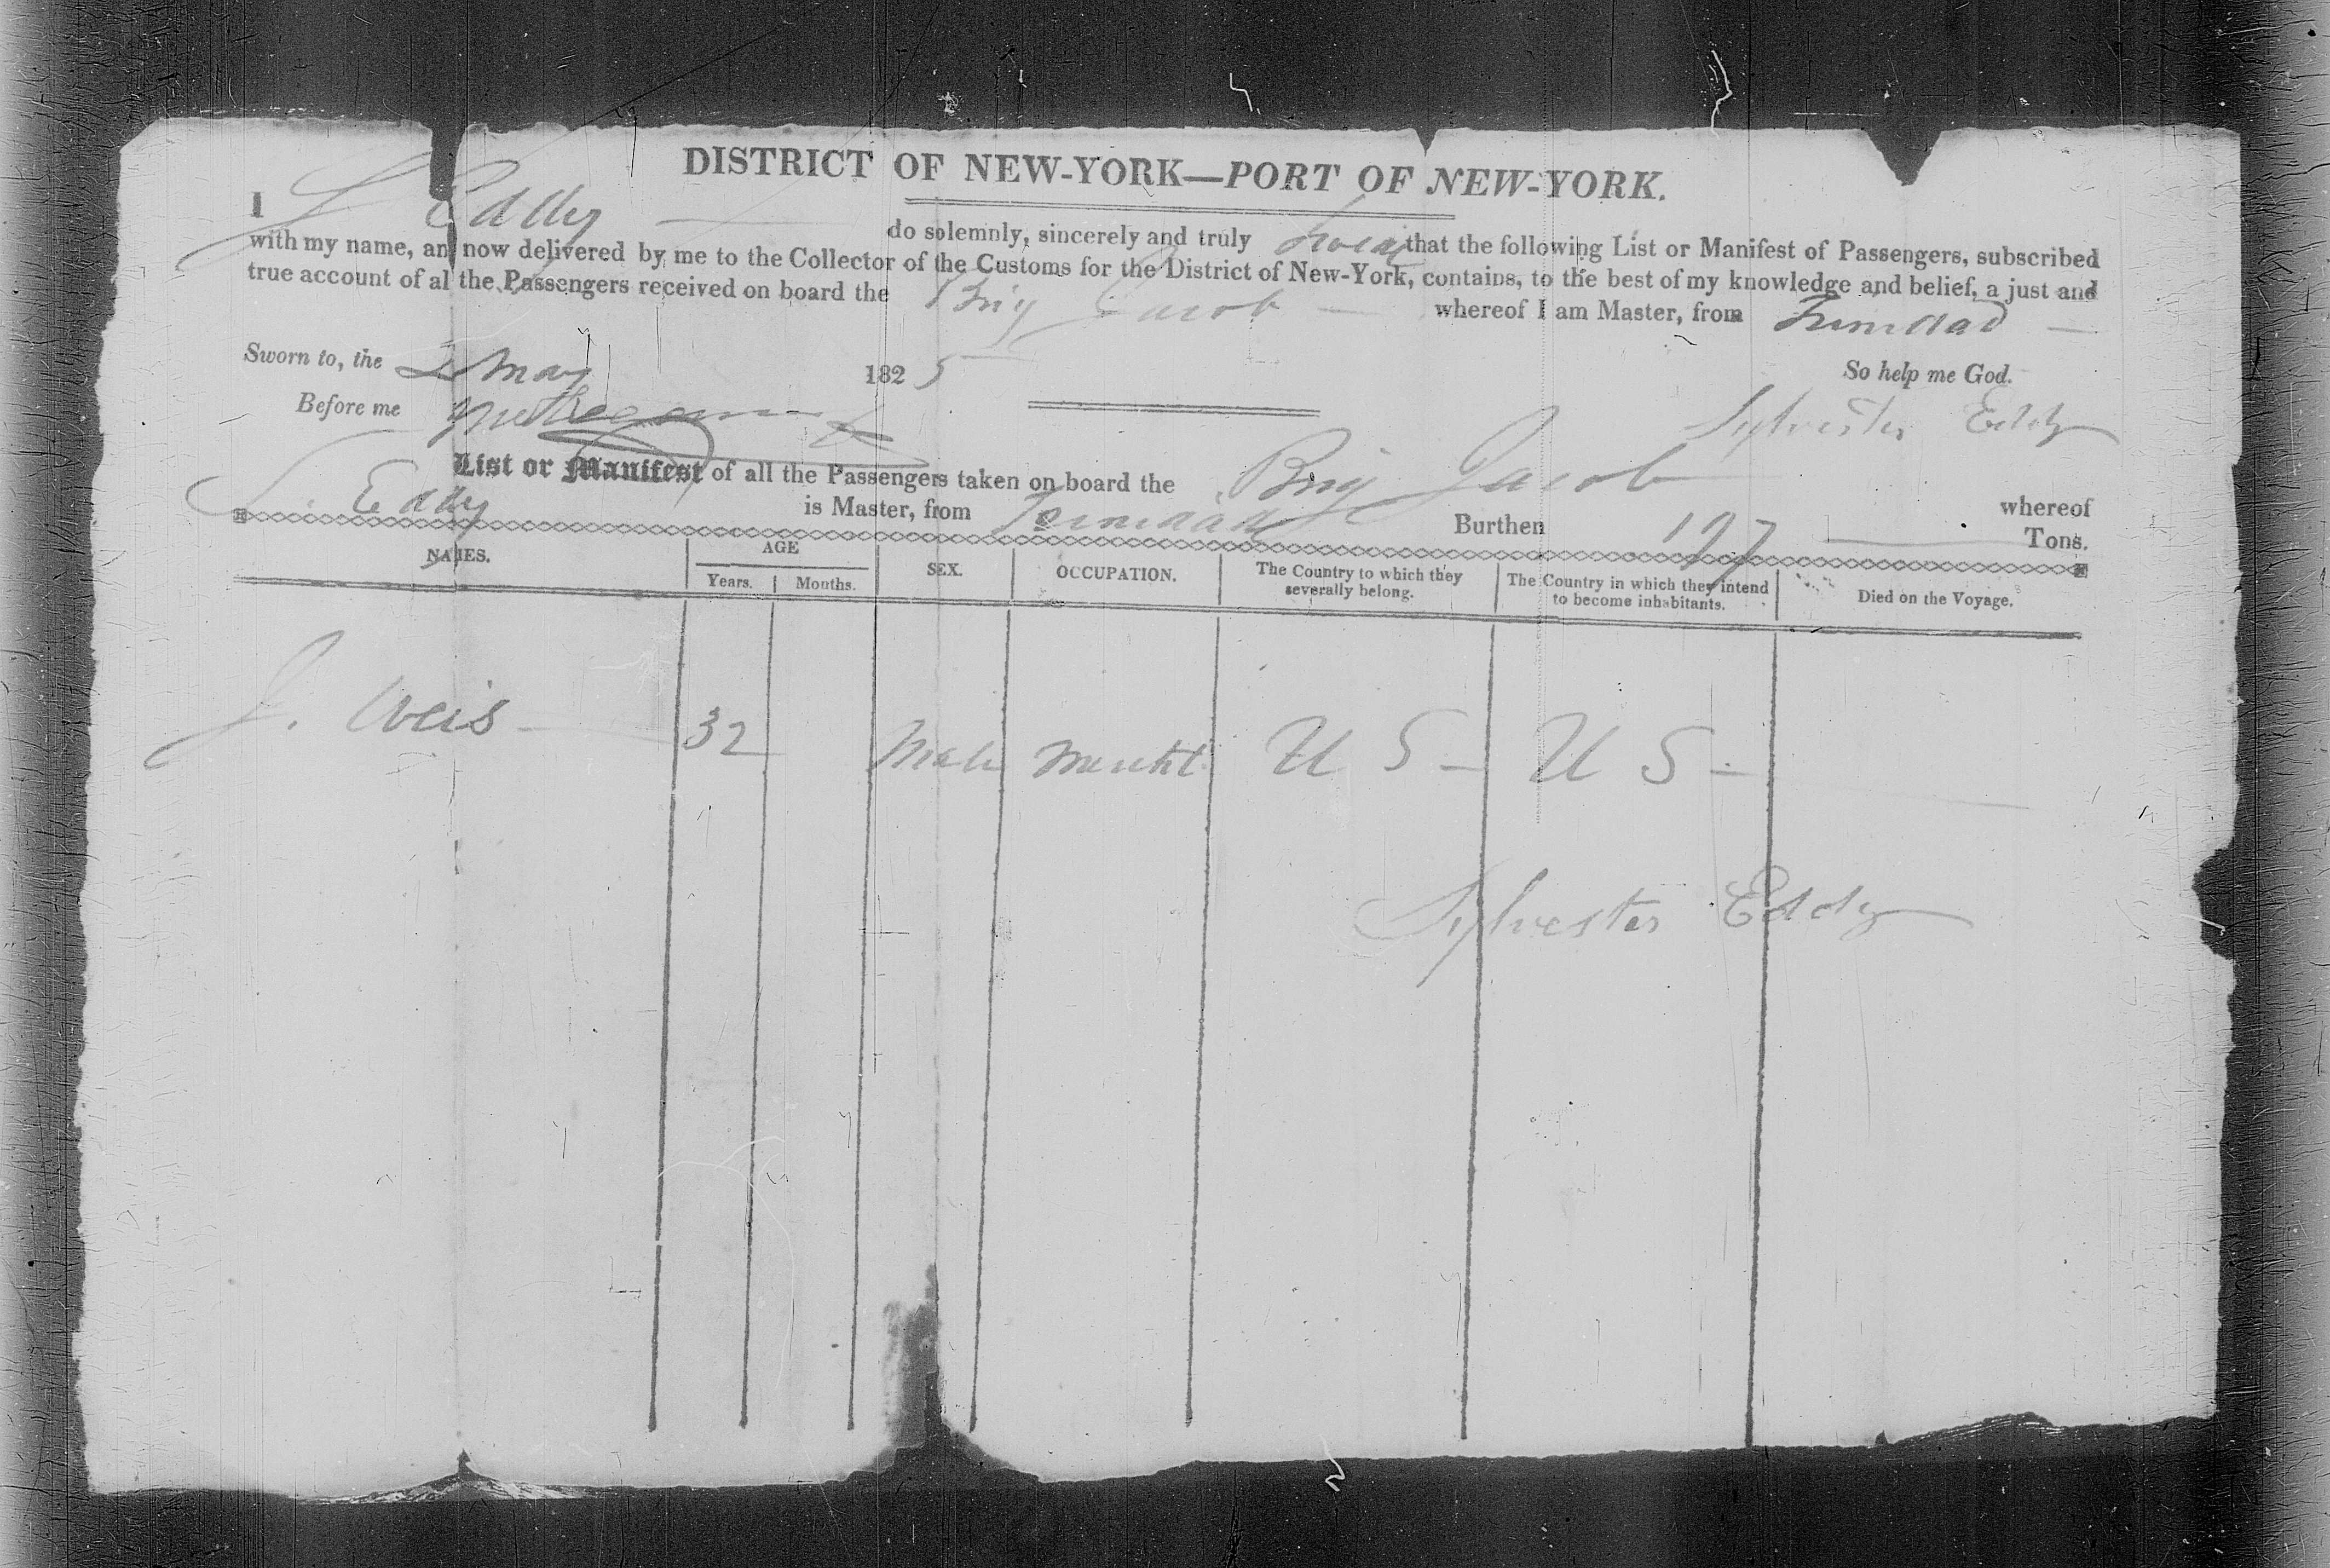 DISTRICT OF NEW-YORK—PORT OF NEW-YORK.
I S Eddy do solemnly, sincerely and truly Swear that the following List or Manifest of Passengers, subscribed
with my name, and now delivered by me to the Collector of the Customs for the District of New-York, contains, to the best of my knowledge and belief, a just and
true account of all the Passengers received on board the Brig Jacob whereof I am Master, from Trinidad
Sworn to, the 2 May 1825 So help me God.
Before me Sylvester Eddy
List or Manifest of all the Passengers taken on board the Brig Jacob whereof
S. Eddy is Master, from Trinidad Burthen 197 Tons.
NAMES. AGE Years. Months. SEX. OCCUPATION. The Country to which they severally belong. The Country in which they intend to become inhabitants. Died on the Voyage.
J. Weis 32 Male Mercht U S U S
Sylvester Eddy